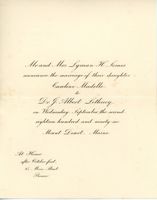 Mr and Mrs Lyman H. Somes
announce the marriage of their daughter
Caroline Mabelle
to
Dr J. Albert
on Wednesday September the second
eighteen hundred and ninety six
Mount Desert, Maine
At Home
after October first,
Main Street